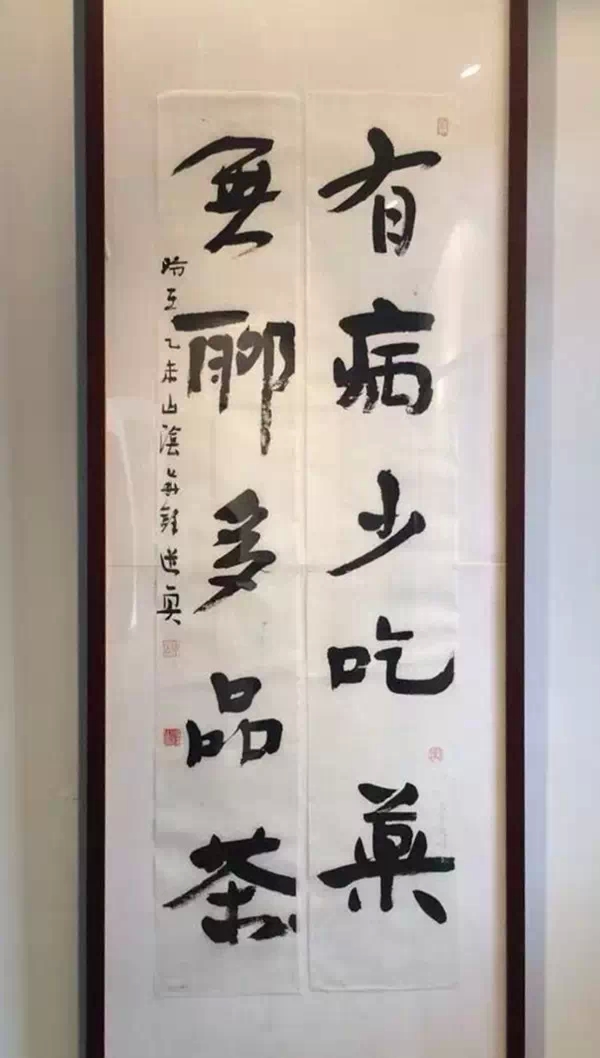 有病少吃藥
無聊多品茶
時在乙未山陰